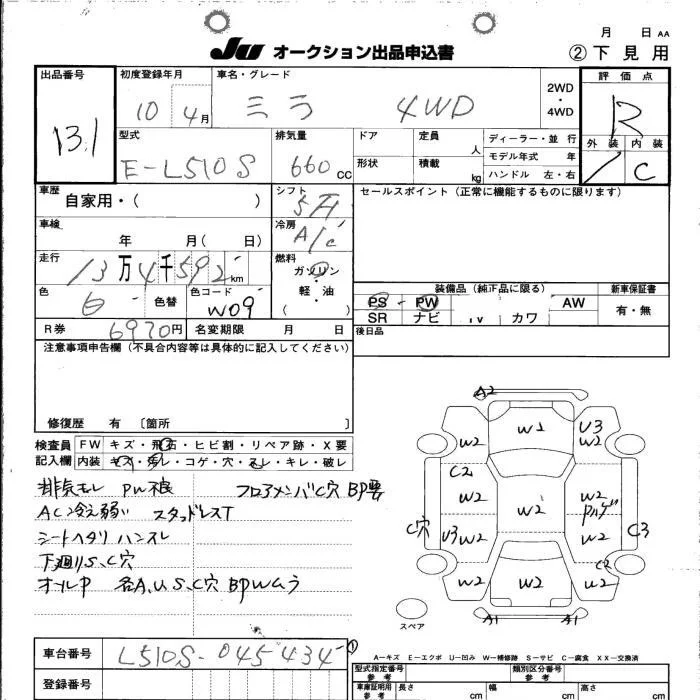 月 日 AA
JU オークション出品申込書 ②下見用
出品番号
131
初度登録年月
10 4月
車名・グレード
ミラ 4WD
2WD
・
4WD
評価点
R
外装 内装
C
型式
E-L510S
排気量
660 cc
ドア
形状
定員
人
積載
kg
ディーラー・並 行
モデル年式 年
ハンドル 左・右
車歴
自家用・( )
シフト
5F
セールスポイント(正常に機能するものに限ります)
車検
年 月( 日)
冷房
A/C
走行
13万4千592km
燃料
ガソリン
・
軽・油
( )
色
白
色替
色コード
W09
装備品(純正品に限る)
PS PW AW
SR ナビ TV カワ
新車保証書
有・無
R券 6970円
名変期限 月 日
後日品
注意事項申告欄(不具合内容等は具体的に記入してください)
修復歴 有 〔箇所 〕
検査員
記入欄
FW キズ・飛石・ヒビ割・リペア跡・X要
内装 キズ・汚レ・コゲ・穴・スレ・キレ・破レ
排気モレ PW不良 フロアメンバC穴 BP要
AC冷え弱い スタッドレスT
シートヘタリ ハンスレ
下廻りS、C穴
オールP 各A、U、S、C穴 BPWムラ
A2
W2
W1
U3
W2
C2
W2
W2
W2
Pハゲ
C穴
U3
W2
W2
C3
W2
W2
C2
W2
A1
A1
スペア
車台番号
L510S-045434
①
登録番号
A−キズ E−エクボ U−凹み W−補修跡 S−サビ C−腐食 XX−交換済
型式指定番号
参考
類別区分番号
参考
車庫証明用
参考
長さ cm
幅 cm
高さ cm